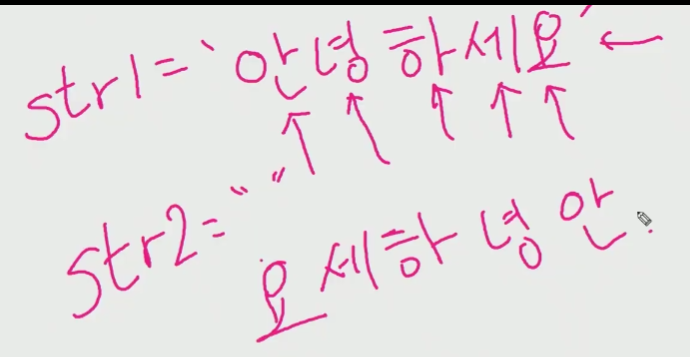 str1=‘안녕하세요’
str2=“ “
요세하녕안.